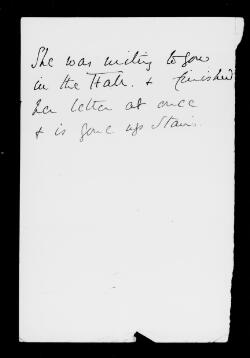 She was writing to you
in the Hall. & finished
her letter at once
& is gone up stairs.